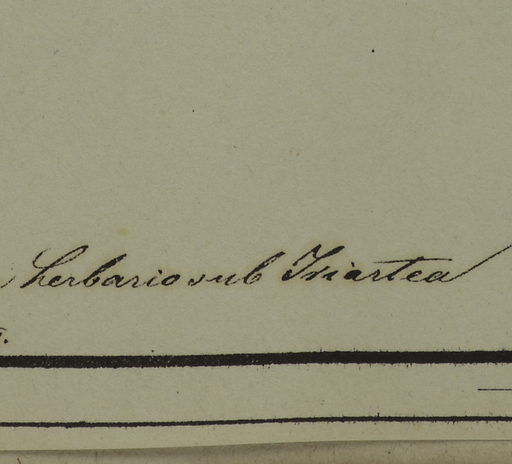 herbario sub Iriartea